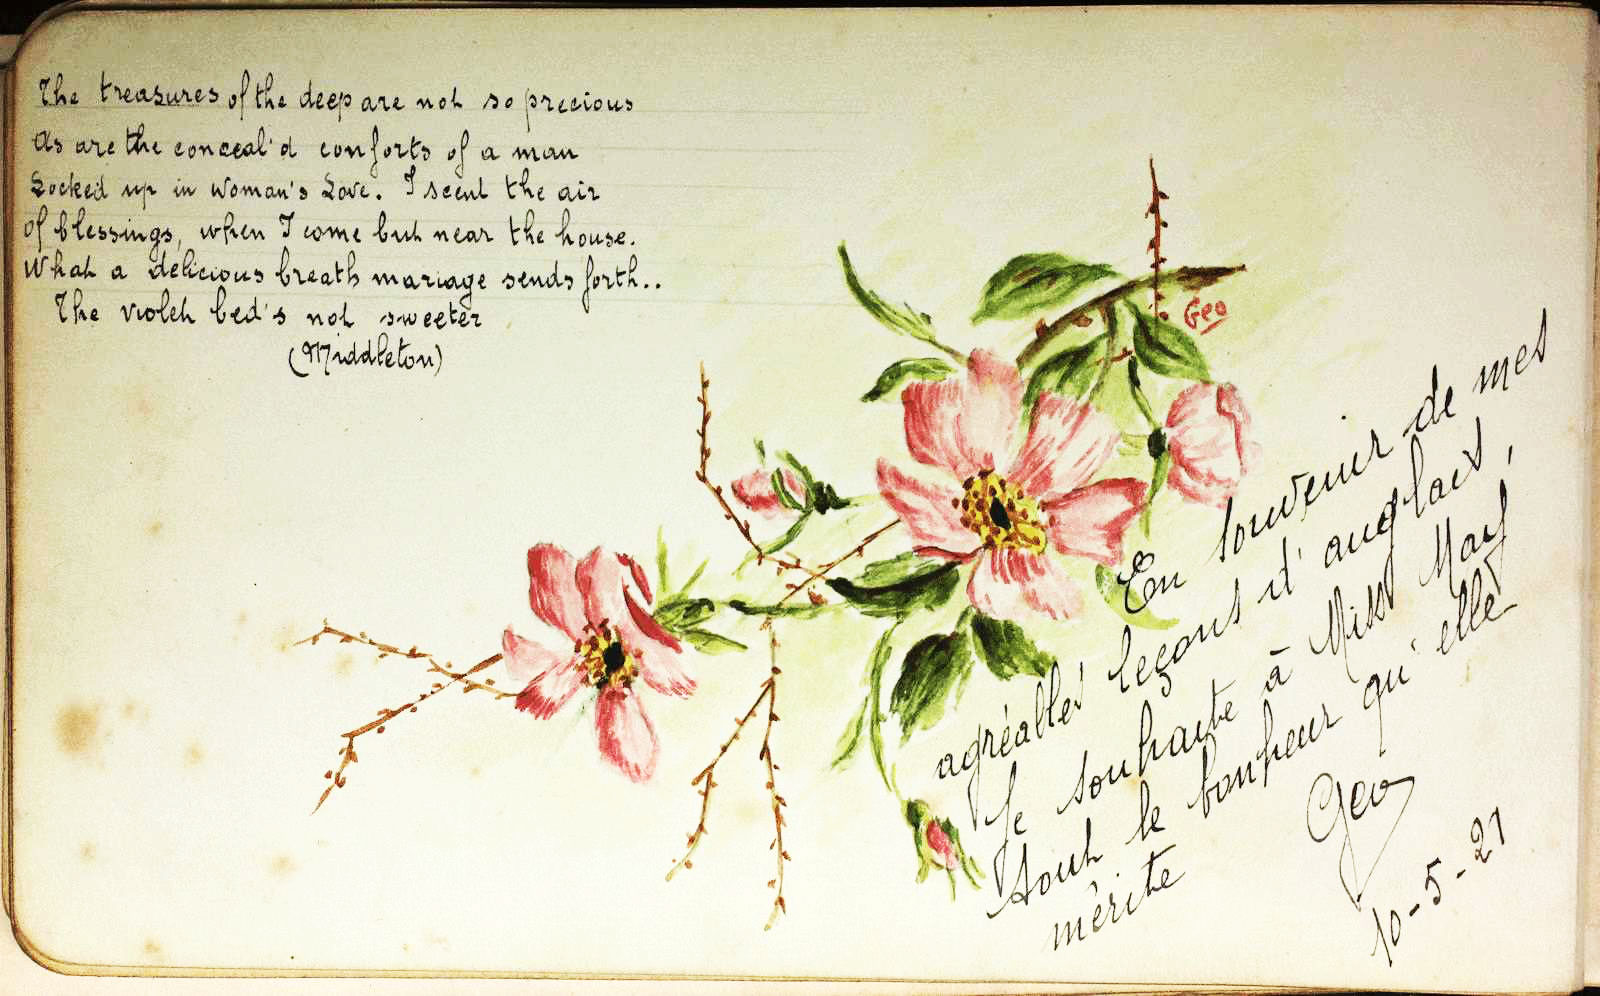 The treasures of the deep are not so precious
As are the conceal'd conforts of a man
Locked up in woman's Love. I scent the air
Of blessings, when I come but near the house.
What a delicious breath mariage sends forth..
The violet bed's not sweeter
(Middleton)
Geo
En souvenir de mes
agréables leçons d'anglais,
Je souhaite à Miss May
tout le bonheur qu'elle
mérite
Geo
10-5-21